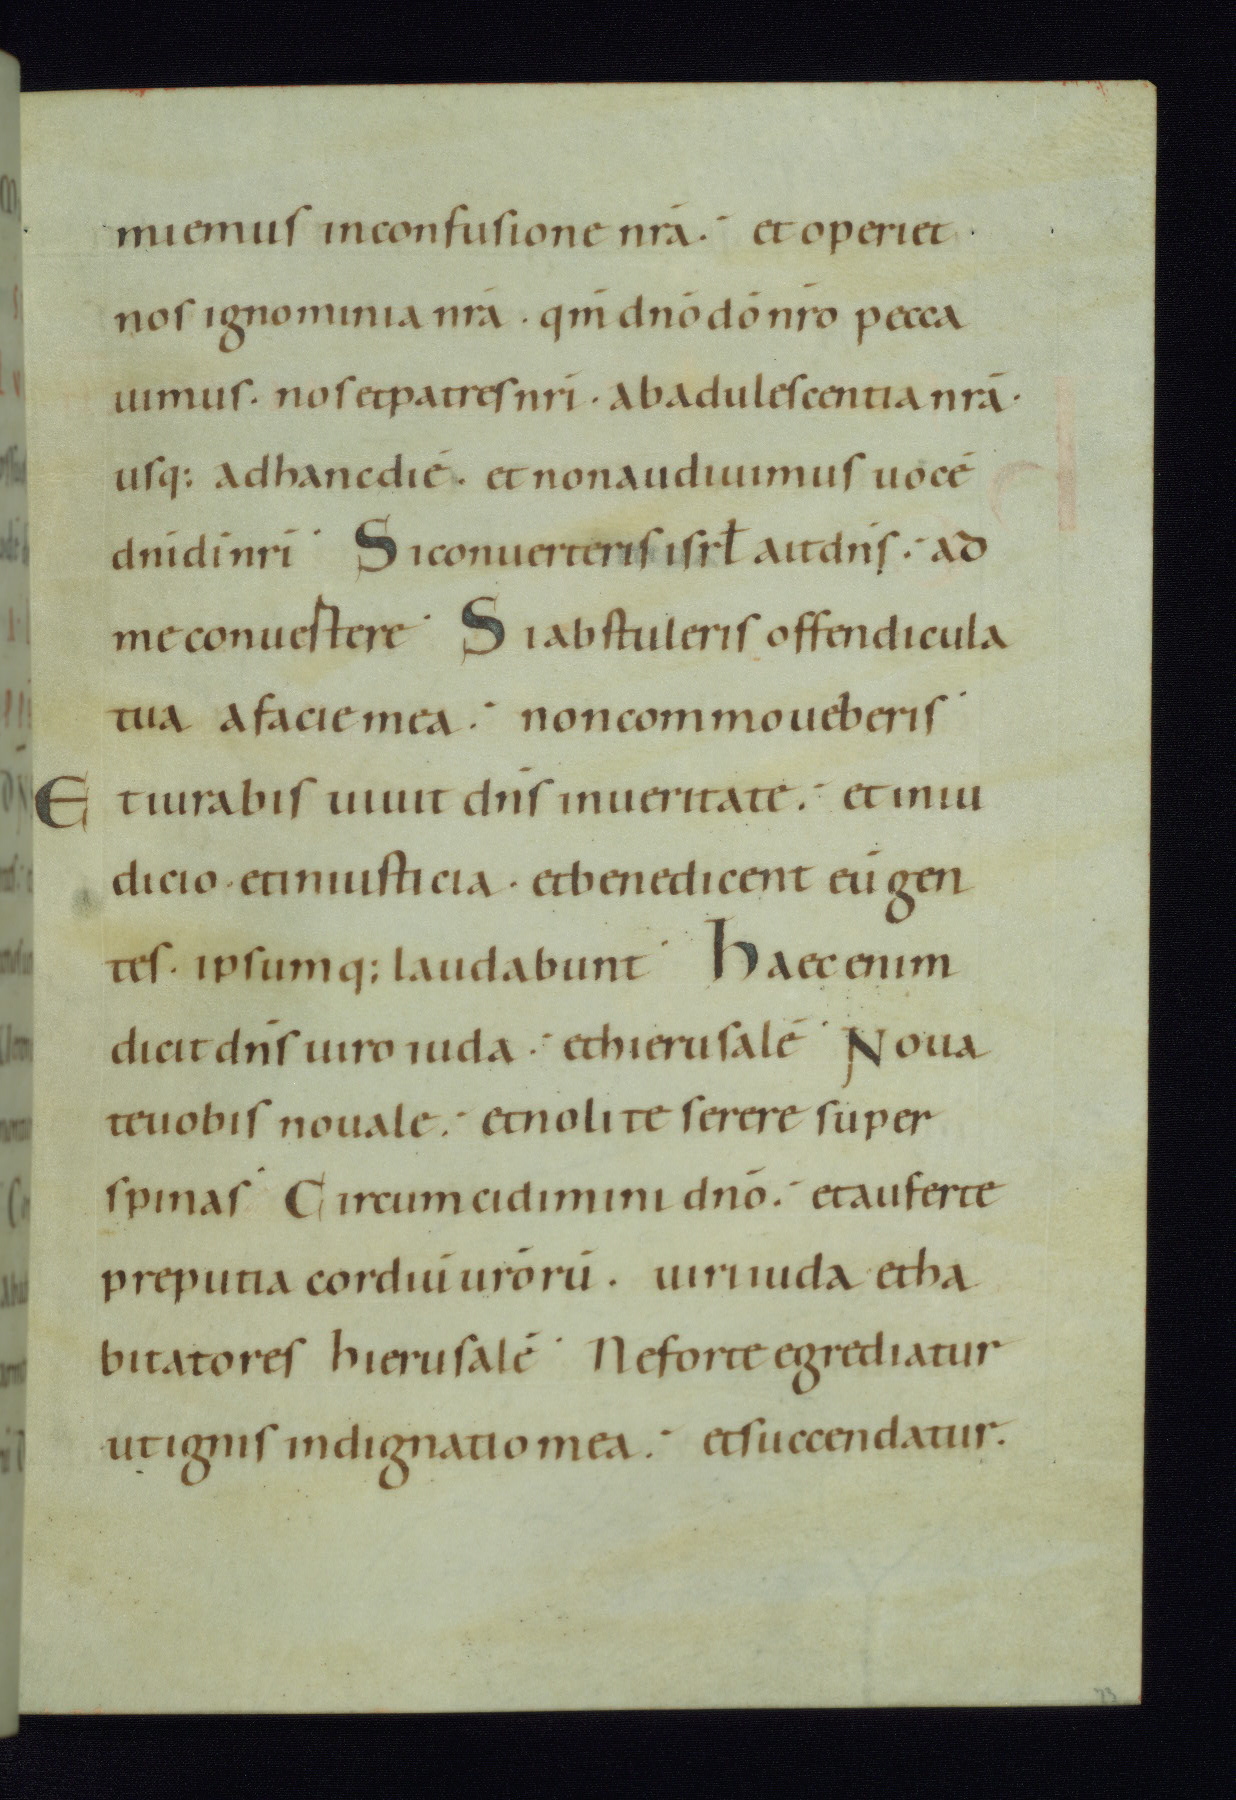 miemus inconfusione nrā. et operiet
nos ignominia nrā. qm̄ dnō dō nrō pecca
uimus. nos et patres nrī. ab adulescentia nrā.
usq; ad hanc diē. et non audiuimus uocē
dnī dī nrī Si conuerteris isrł ait dn̄s. ad
me conuertere Si abstuleris offendicula
tua a facie mea. non commoueberis
Et iurabis uiuit dn̄s in ueritate. et in iu
dicio et in iusticia. et benedicent eū gen
tes. ipsumq; laudabunt haec enim
dicit dn̄s uiro iuda. et hierusalē Noua
te uobis nouale. et nolite serere super
spinas Circumcidimini dnō. et auferte
preputia cordiū urōrū. uiri iuda et ha
bitatores hierusalē Ne forte egrediatur
ut ignis indignatio mea. et succendatur.
73